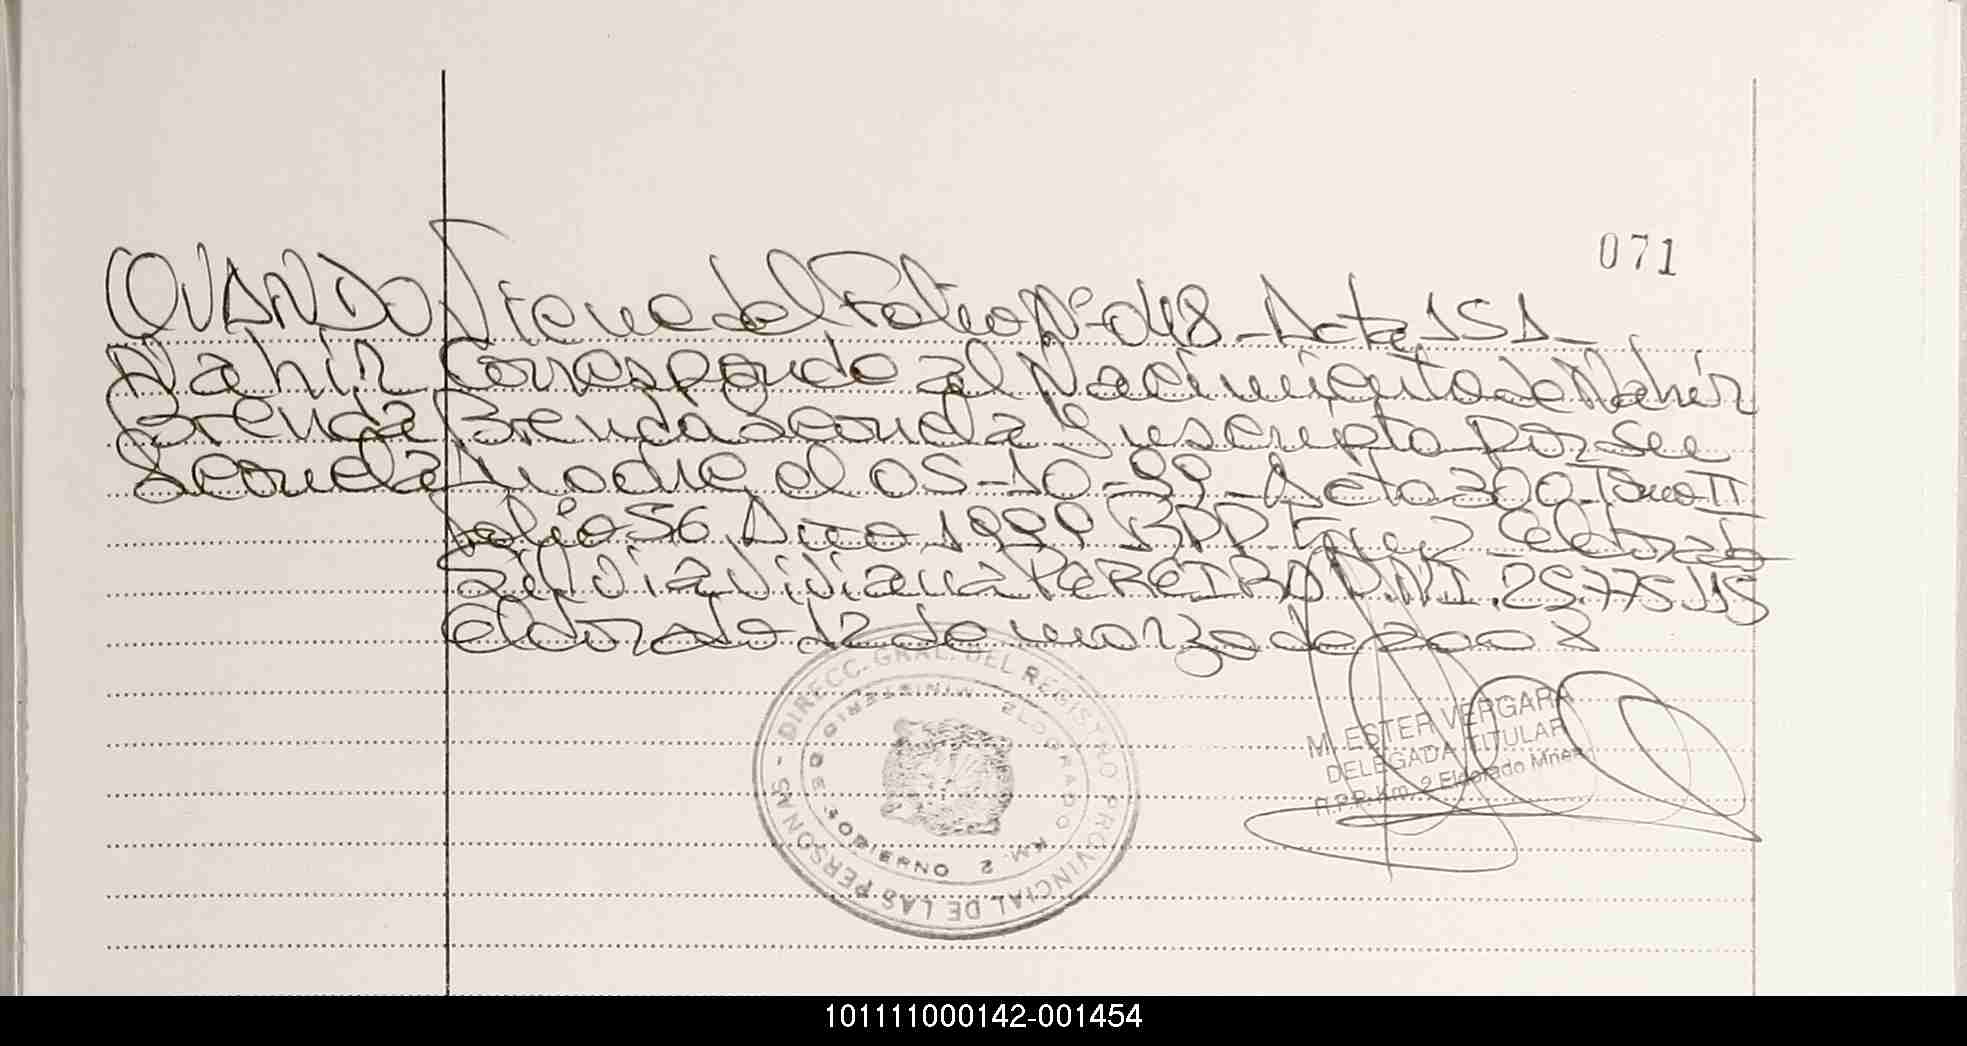 071
OVANDO Viene del Folio Nº 048 - Acta 151 -
Nahir Corresponde al Nacimiento de Nahir
Brenda Brenda Seouela Inscripto por su
Seouela Madre el 05-10-99 - Acta 300 - Tomo II
folio 56 Año 1999 RPP Eldorado
Silvia Viviana PEREIRA D.N.I. 25.775.115
Eldorado 12 de marzo de 2003
DIRECC. GRAL. DEL REGISTRO PROVINCIAL DE LAS PERSONAS -
MINISTERIO DE GOBIERNO
ELDORADO KM. 2
M. ESTER VERGARA
DELEGADA TITULAR
R.P.P. Km. 2 Eldorado Mnes.
101111000142-001454